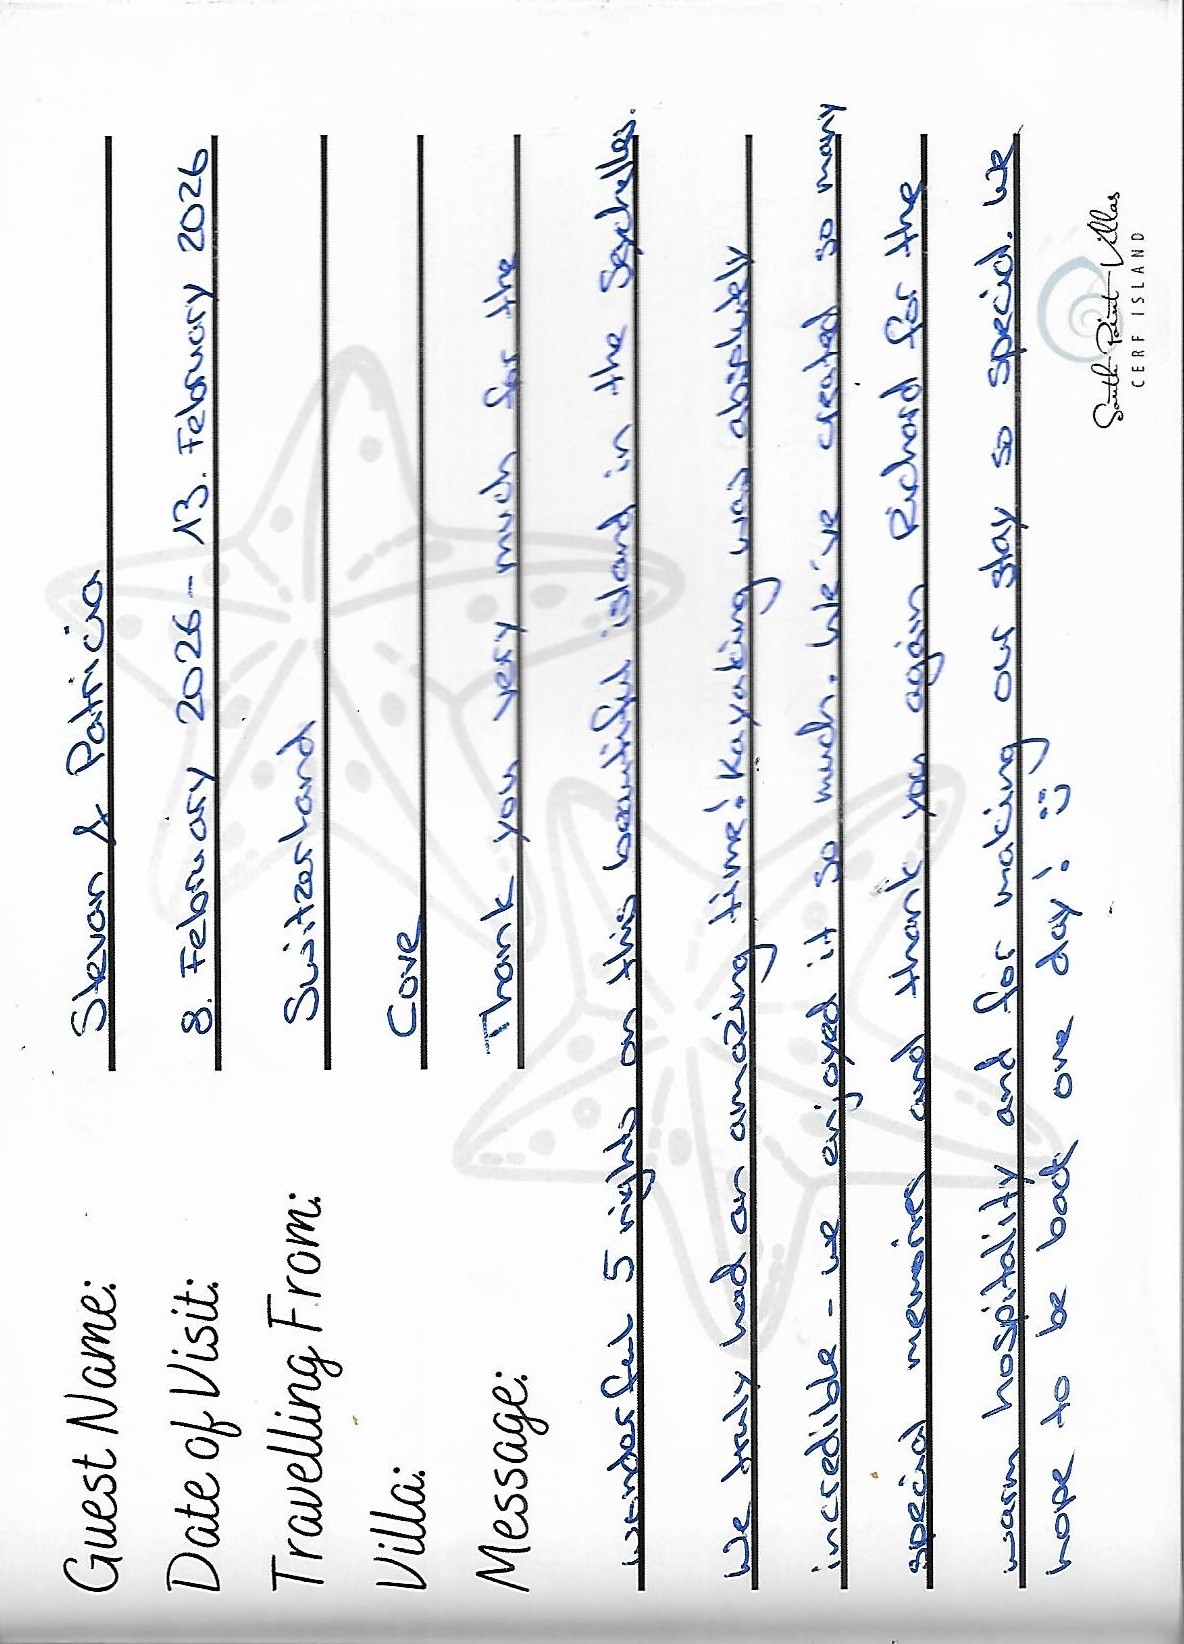 Guest Name: Stevan & Patricia
Date of Visit: 8. February 2026 - 13. February 2026
Travelling From: Switzerland
Villa: Cove
Message: Thank you very much for the
wonderful 5 nights on this beautiful island in the Seychelles.
We truly had an amazing time! Kayaking was absolutely
incredible - we enjoyed it so much. We've created so many
special memories and thank you again Richard for the
warm hospitality and for making our stay so special. We
hope to be back one day! :)
South Point Villas
CERF ISLAND